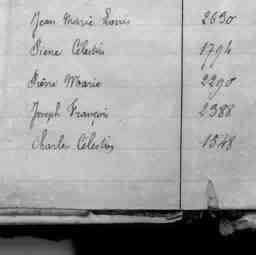 Jean Marie Louis 2630
Pierre Célestin 1794
Irène Marie 2290
Joseph François 2388
Charles Célestin 1548